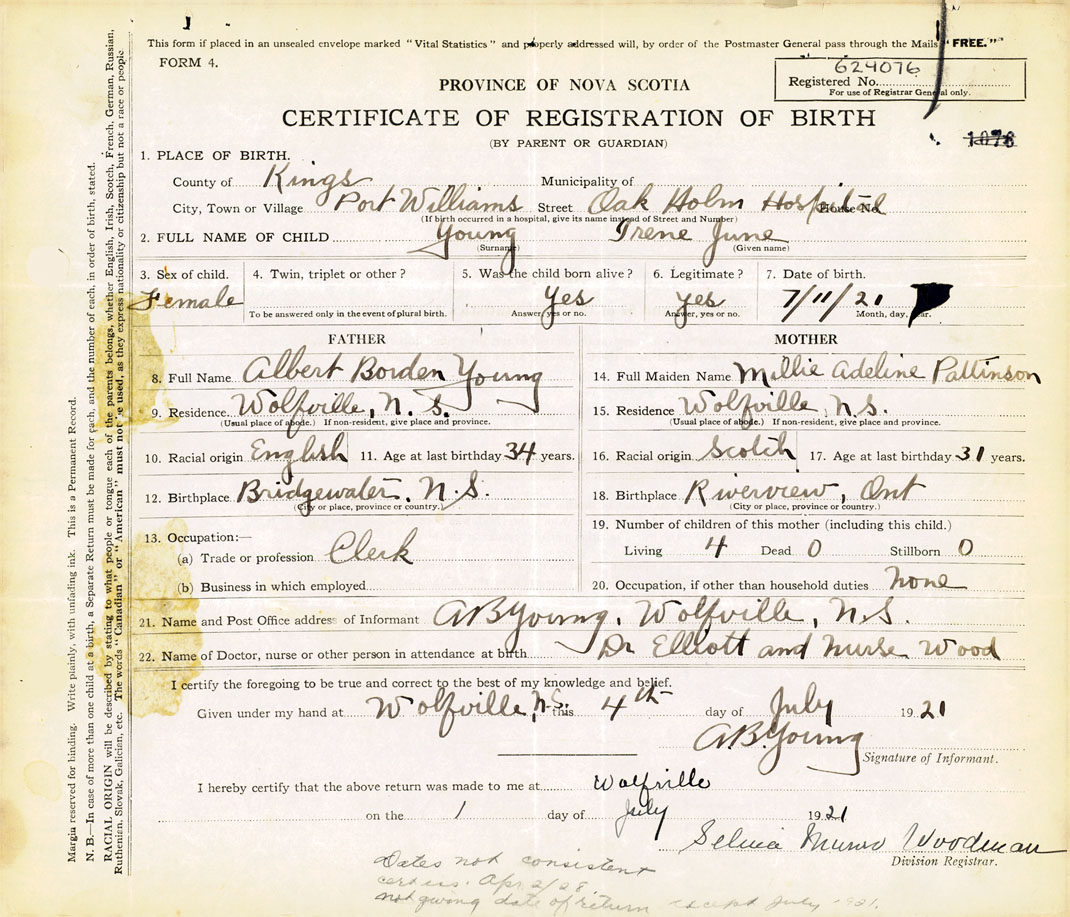 This form if placed in an unsealed envelope marked "Vital Statistics" and properly addressed will, by order of the Postmaster General pass through the Mails "FREE."
FORM 4.
624076
Registered No.
For use of Registrar General only.
PROVINCE OF NOVA SCOTIA
CERTIFICATE OF REGISTRATION OF BIRTH
1076
(BY PARENT OR GUARDIAN)
1. PLACE OF BIRTH.
County of Kings Municipality of
City, Town or Village Port Williams Street Oak Holm Hospital House No.
(If birth occurred in a hospital, give its name instead of Street and Number)
2. FULL NAME OF CHILD Young Irene June
(Surname) (Given name)
3. Sex of child. 4. Twin, triplet or other? 5. Was the child born alive? 6. Legitimate? 7. Date of birth.
Female Yes yes 7/11/21
To be answered only in the event of plural birth. Answer, yes or no. Answer, yes or no. Month, day, year.
FATHER MOTHER
8. Full Name Albert Borden Young 14. Full Maiden Name Millie Adeline Pattinson
9. Residence Wolfville, N.S. 15. Residence Wolfville, N.S.
(Usual place of abode.) If non-resident, give place and province. (Usual place of abode.) If non-resident, give place and province.
10. Racial origin English 11. Age at last birthday 34 years. 16. Racial origin Scotch 17. Age at last birthday 31 years.
12. Birthplace Bridgewater, N.S. 18. Birthplace Riverview, Ont
(City or place, province or country.) (City or place, province or country.)
19. Number of children of this mother (including this child.)
13. Occupation:—
(a) Trade or profession Clerk Living 4 Dead 0 Stillborn 0
(b) Business in which employed 20. Occupation, if other than household duties none
21. Name and Post Office address of Informant A B Young, Wolfville, N.S.
22. Name of Doctor, nurse or other person in attendance at birth Dr Elliott and Nurse Wood
I certify the foregoing to be true and correct to the best of my knowledge and belief.
Given under my hand at Wolfville, N.S. this 4th day of July 1921
A.B. Young
Signature of Informant.
I hereby certify that the above return was made to me at Wolfville
on the 1 day of July 1921
Selina Munro Woodman
Division Registrar.
Dates not consistent
Apr 2/28.
not giving date of return except July 1921.
Margin reserved for binding. Write plainly, with unfading ink. This is a Permanent Record.
N. B.—In case of more than one child at a birth, a Separate Return must be made for each, and the number of each, in order of birth, stated.
RACIAL ORIGIN will be described by stating to what people or tongue each of the parents belongs, whether English, Irish, Scotch, French, German, Russian,
Ruthenian, Slovak, Galician, etc. The words "Canadian" or "American" must not be used, as they express nationality or citizenship but not a race or people